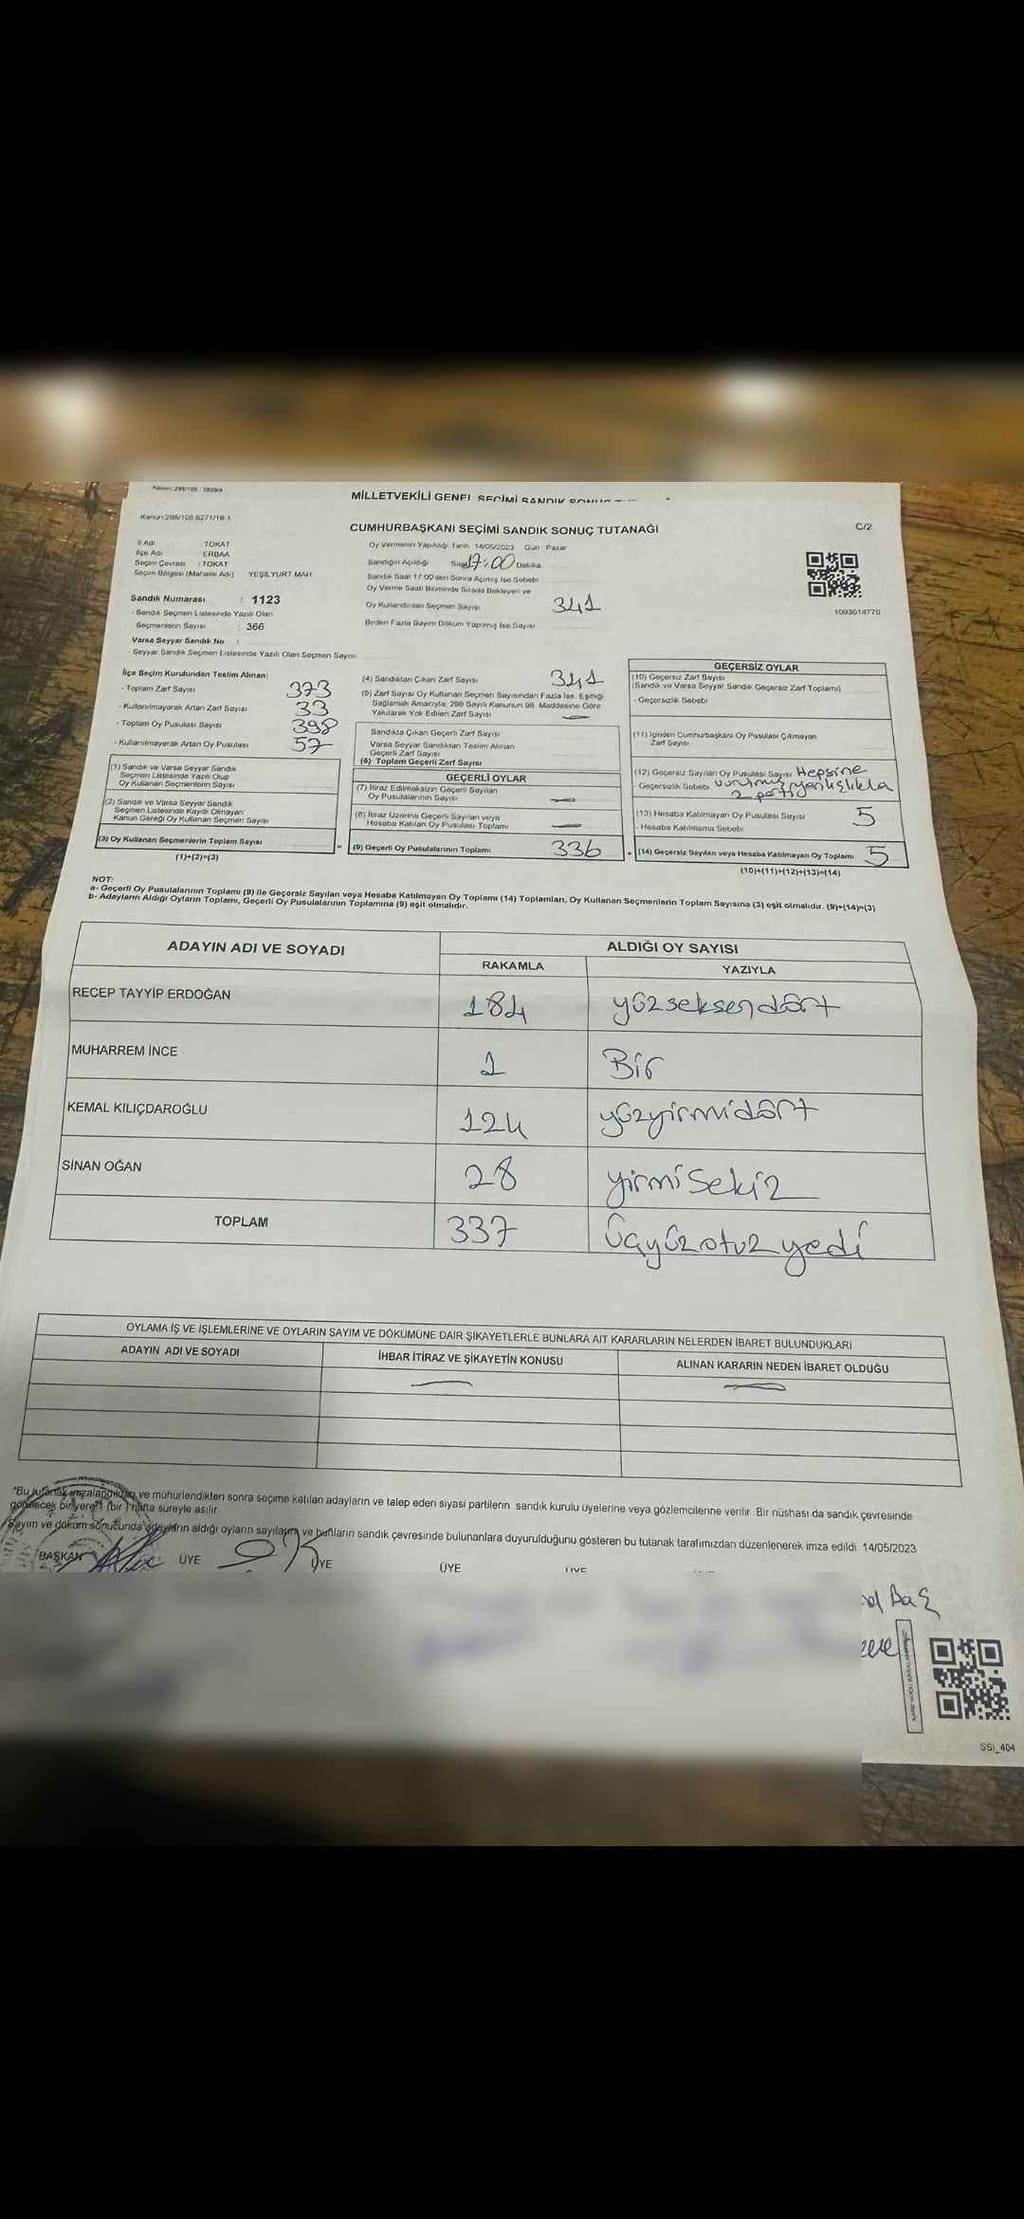 Kanun: 298/106 : 2839/4
MİLLETVEKİLİ GENEL SEÇİMİ SANDIK SONUÇ
Kanun:298/106.6271/18-1
CUMHURBAŞKANI SEÇİMİ SANDIK SONUÇ TUTANAĞI
C/2
İl Adı : TOKAT
İlçe Adı : ERBAA
Seçim Çevresi : TOKAT
Seçim Bölgesi (Mahalle Adı) YEŞİLYURT MAH
Sandık Numarası : 1123
- Sandık Seçmen Listesinde Yazılı Olan
Seçmenlerin Sayısı : 366
Varsa Seyyar Sandık No :
- Seyyar Sandık Seçmen Listesinde Yazılı Olan Seçmen Sayısı
Oy Vermenin Yapıldığı Tarih 14/05/2023 Gün : Pazar
Sandığın Açıldığı Saat 17:00 Dakika
Sandık Saat 17.00'den Sonra Açılmış İse Sebebi
Oy Verme Saati Bitiminde Sırada Bekleyen ve
Oy Kullandırılan Seçmen Sayısı 341
Birden Fazla Sayım Döküm Yapılmış İse Sayısı
1093614770
İlçe Seçim Kurulundan Teslim Alınan;
- Toplam Zarf Sayısı 373
- Kullanılmayarak Artan Zarf Sayısı 33
- Toplam Oy Pusulası Sayısı 398
- Kullanılmayarak Artan Oy Pusulası 57
(1) Sandık ve Varsa Seyyar Sandık
Seçmen Listesinde Yazılı Olup
Oy Kullanan Seçmenlerin Sayısı
(2) Sandık ve Varsa Seyyar Sandık
Seçmen Listesinde Kayıtlı Olmayan
Kanun Gereği Oy Kullanan Seçmen Sayısı
(3) Oy Kullanan Seçmenlerin Toplam Sayısı
(1)+(2)=(3)
(4) Sandıktan Çıkan Zarf Sayısı 341
(5) Zarf Sayısı Oy Kullanan Seçmen Sayısından Fazla İse, Eşitliği
Sağlamak Amacıyla; 298 Sayılı Kanunun 98. Maddesine Göre
Yakılarak Yok Edilen Zarf Sayısı —
Sandıkta Çıkan Geçerli Zarf Sayısı
Varsa Seyyar Sandıktan Teslim Alınan
Geçerli Zarf Sayısı
(6) Toplam Geçerli Zarf Sayısı
GEÇERLİ OYLAR
(7) İtiraz Edilmeksizin Geçerli Sayılan
Oy Pusulalarının Sayısı —
(8) İtiraz Üzerine Geçerli Sayılan veya
Hesaba Katılan Oy Pusulası Toplamı —
= (9) Geçerli Oy Pusulalarının Toplamı 336
GEÇERSİZ OYLAR
(10) Geçersiz Zarf Sayısı
(Sandık ve Varsa Seyyar Sandık Geçersiz Zarf Toplamı)
- Geçersizlik Sebebi
(11) İçinden Cumhurbaşkanı Oy Pusulası Çıkmayan
Zarf Sayısı
(12) Geçersiz Sayılan Oy Pusulası Sayısı Hepsine
- Geçersizlik Sebebi vurulmuş yanlışlıkla
2 parti
(13) Hesaba Katılmayan Oy Pusulası Sayısı 5
- Hesaba Katılmama Sebebi
+ (14) Geçersiz Sayılan veya Hesaba Katılmayan Oy Toplamı 5
(10)+(11)+(12)+(13)=(14)
NOT:
a- Geçerli Oy Pusulalarının Toplamı (9) ile Geçersiz Sayılan veya Hesaba Katılmayan Oy Toplamı (14) Toplamları, Oy Kullanan Seçmenlerin Toplam Sayısına (3) eşit olmalıdır. (9)+(14)=(3)
b- Adayların Aldığı Oyların Toplamı, Geçerli Oy Pusulalarının Toplamına (9) eşit olmalıdır.
ADAYIN ADI VE SOYADI
ALDIĞI OY SAYISI
RAKAMLA YAZIYLA
RECEP TAYYİP ERDOĞAN 184 yüzseksendört
MUHARREM İNCE 1 Bir
KEMAL KILIÇDAROĞLU 124 yüzyirmidört
SİNAN OĞAN 28 yirmisekiz
TOPLAM 337 üçyüzotuzyedi
OYLAMA İŞ VE İŞLEMLERİNE VE OYLARIN SAYIM VE DÖKÜMÜNE DAİR ŞİKAYETLERLE BUNLARA AİT KARARLARIN NELERDEN İBARET BULUNDUKLARI
ADAYIN ADI VE SOYADI İHBAR İTİRAZ VE ŞİKAYETİN KONUSU ALINAN KARARIN NEDEN İBARET OLDUĞU
— —
*Bu tutanak imzalandıktan ve mühürlendikten sonra seçime katılan adayların ve talep eden siyasi partilerin sandık kurulu üyelerine veya gözlemcilerine verilir. Bir nüshası da sandık çevresinde
görülecek bir yere 1 (bir) hafta süreyle asılır.
Sayım ve döküm sonucunda adayların aldığı oyların sayılarını ve bunların sandık çevresinde bulunanlara duyurulduğunu gösteren bu tutanak tarafımızdan düzenlenerek imza edildi. 14/05/2023
BAŞKAN ÜYE ÜYE ÜYE ÜYE
SSI_404